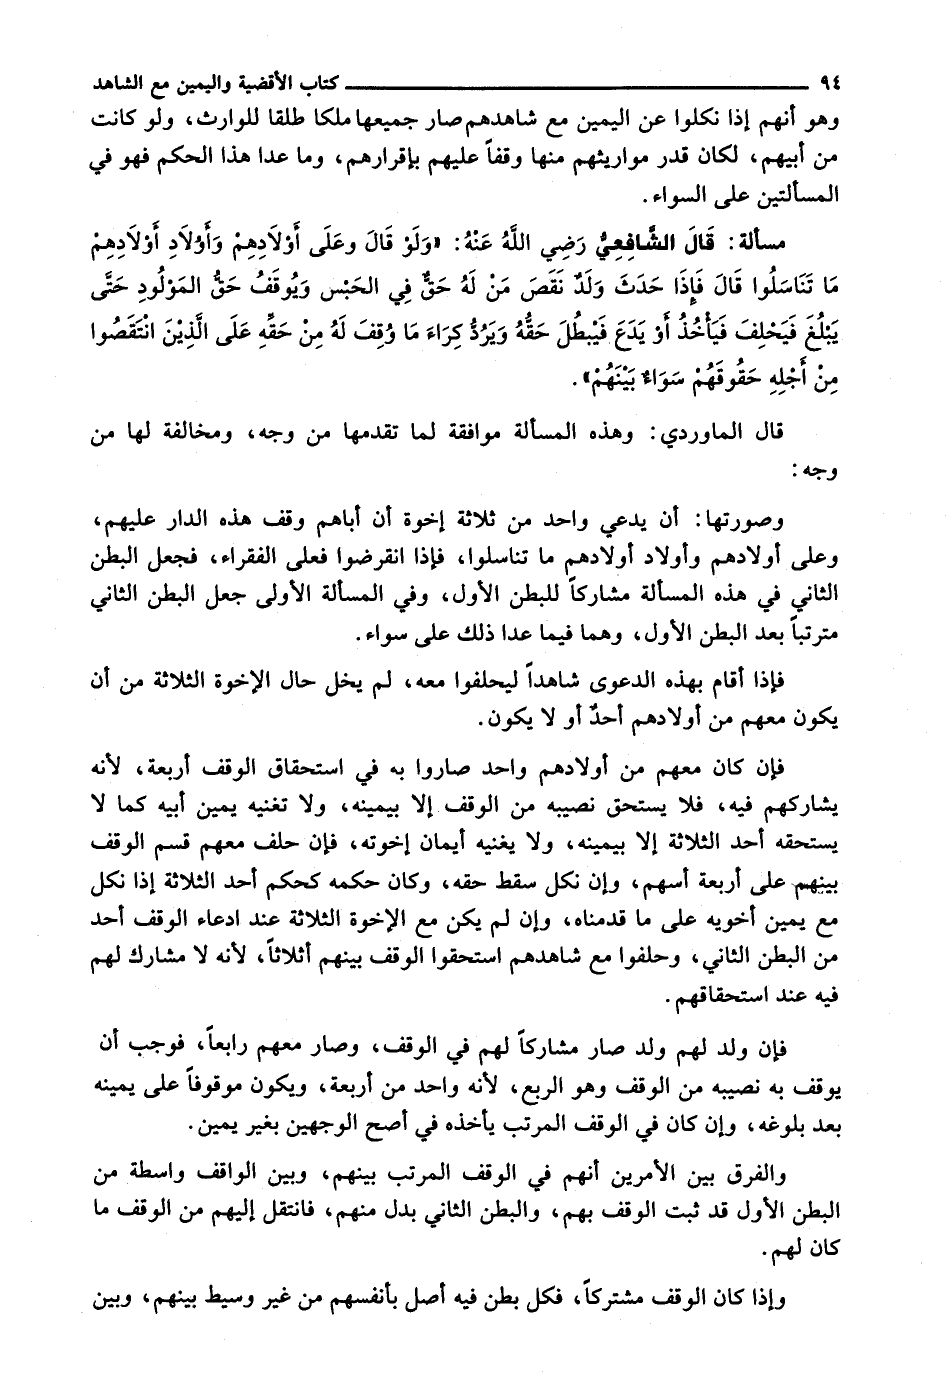 ٩٤ كتاب الأقضية واليمين مع الشاهد
وهو أنهم إذا نكلوا عن اليمين مع شاهدهم صار جميعها ملكا طلقا للوارث، ولو كانت
من أبيهم، لكان قدر مواريثهم منها وقفاً عليهم بإقرارهم، وما عدا هذا الحكم فهو في
المسألتين على السواء.
مسألة: قَالَ الشَّافِعِيُّ رَضِي اللَّهُ عَنْهُ: «وَلَوْ قَالَ وعَلَى أَوْلَادِهِمْ وَأَوْلَادِ أَوْلَادِهِمْ
مَا تَنَاسَلُوا قَالَ فَإِذَا حَدَثَ وَلَدٌ نَقَصَ مَنْ لَهُ حَقٌّ فِي الحَبْسِ وَيُوقَفُ حَقُّ المَوْلُودِ حَتَّى
يَبْلُغَ فَيَحْلِفَ فَيَأْخُذُ أَوْ يَدَعَ فَيَبْطُلَ حَقُّهُ وَيَرُدُّ كِرَاءَ مَا وُقِفَ لَهُ مِنْ حَقِّهِ عَلَى الَّذِيْنَ انْتَقَصُوا
مِنْ أَجْلِهِ حَقُوقَهُمْ سَوَاءٌ بَيْنَهُمْ».
قال الماوردي: وهذه المسألة موافقة لما تقدمها من وجه، ومخالفة لها من
وجه:
وصورتها: أن يدعي واحد من ثلاثة إخوة أن أباهم وقف هذه الدار عليهم،
وعلى أولادهم وأولاد أولادهم ما تناسلوا، فإذا انقرضوا فعلى الفقراء، فجعل البطن
الثاني في هذه المسألة مشاركاً للبطن الأول، وفي المسألة الأولى جعل البطن الثاني
مترتباً بعد البطن الأول، وهما فيما عدا ذلك على سواء.
فإذا أقام بهذه الدعوى شاهداً ليحلفوا معه، لم يخل حال الإخوة الثلاثة من أن
يكون معهم من أولادهم أحدٌ أو لا يكون.
فإن كان معهم من أولادهم واحد صاروا به في استحقاق الوقف أربعة، لأنه
يشاركهم فيه، فلا يستحق نصيبه من الوقف إلا بيمينه، ولا تغنيه يمين أبيه كما لا
يستحقه أحد الثلاثة إلا بيمينه، ولا يغنيه أيمان إخوته، فإن حلف معهم قسم الوقف
بينهم على أربعة أسهم، وإن نكل سقط حقه، وكان حكمه كحكم أحد الثلاثة إذا نكل
مع يمين أخويه على ما قدمناه، وإن لم يكن مع الإخوة الثلاثة عند ادعاء الوقف أحد
من البطن الثاني، وحلفوا مع شاهدهم استحقوا الوقف بينهم أثلاثاً، لأنه لا مشارك لهم
فيه عند استحقاقهم.
فإن ولد لهم ولد صار مشاركاً لهم في الوقف، وصار معهم رابعاً، فوجب أن
يوقف به نصيبه من الوقف وهو الربع، لأنه واحد من أربعة، ويكون موقوفاً على يمينه
بعد بلوغه، وإن كان في الوقف المرتب يأخذه في أصح الوجهين بغير يمين.
والفرق بين الأمرين أنهم في الوقف المرتب بينهم، وبين الواقف واسطة من
البطن الأول قد ثبت الوقف بهم، والبطن الثاني بدل منهم، فانتقل إليهم من الوقف ما
كان لهم.
وإذا كان الوقف مشتركاً، فكل بطن فيه أصل بأنفسهم من غير وسيط بينهم، وبين